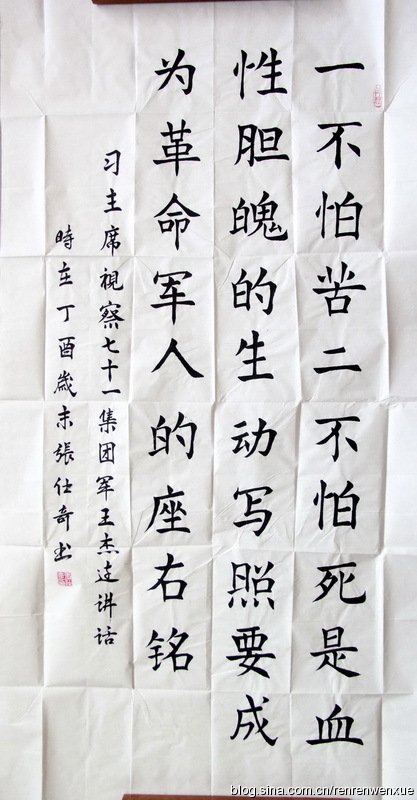 一不怕苦二不怕死是血
性胆魄的生动写照要成
为革命军人的座右铭
习主席視察七十一集团军王杰连讲话
時在丁酉歲末張仕奇书
blog.sina.com.cn/renrenwenxue